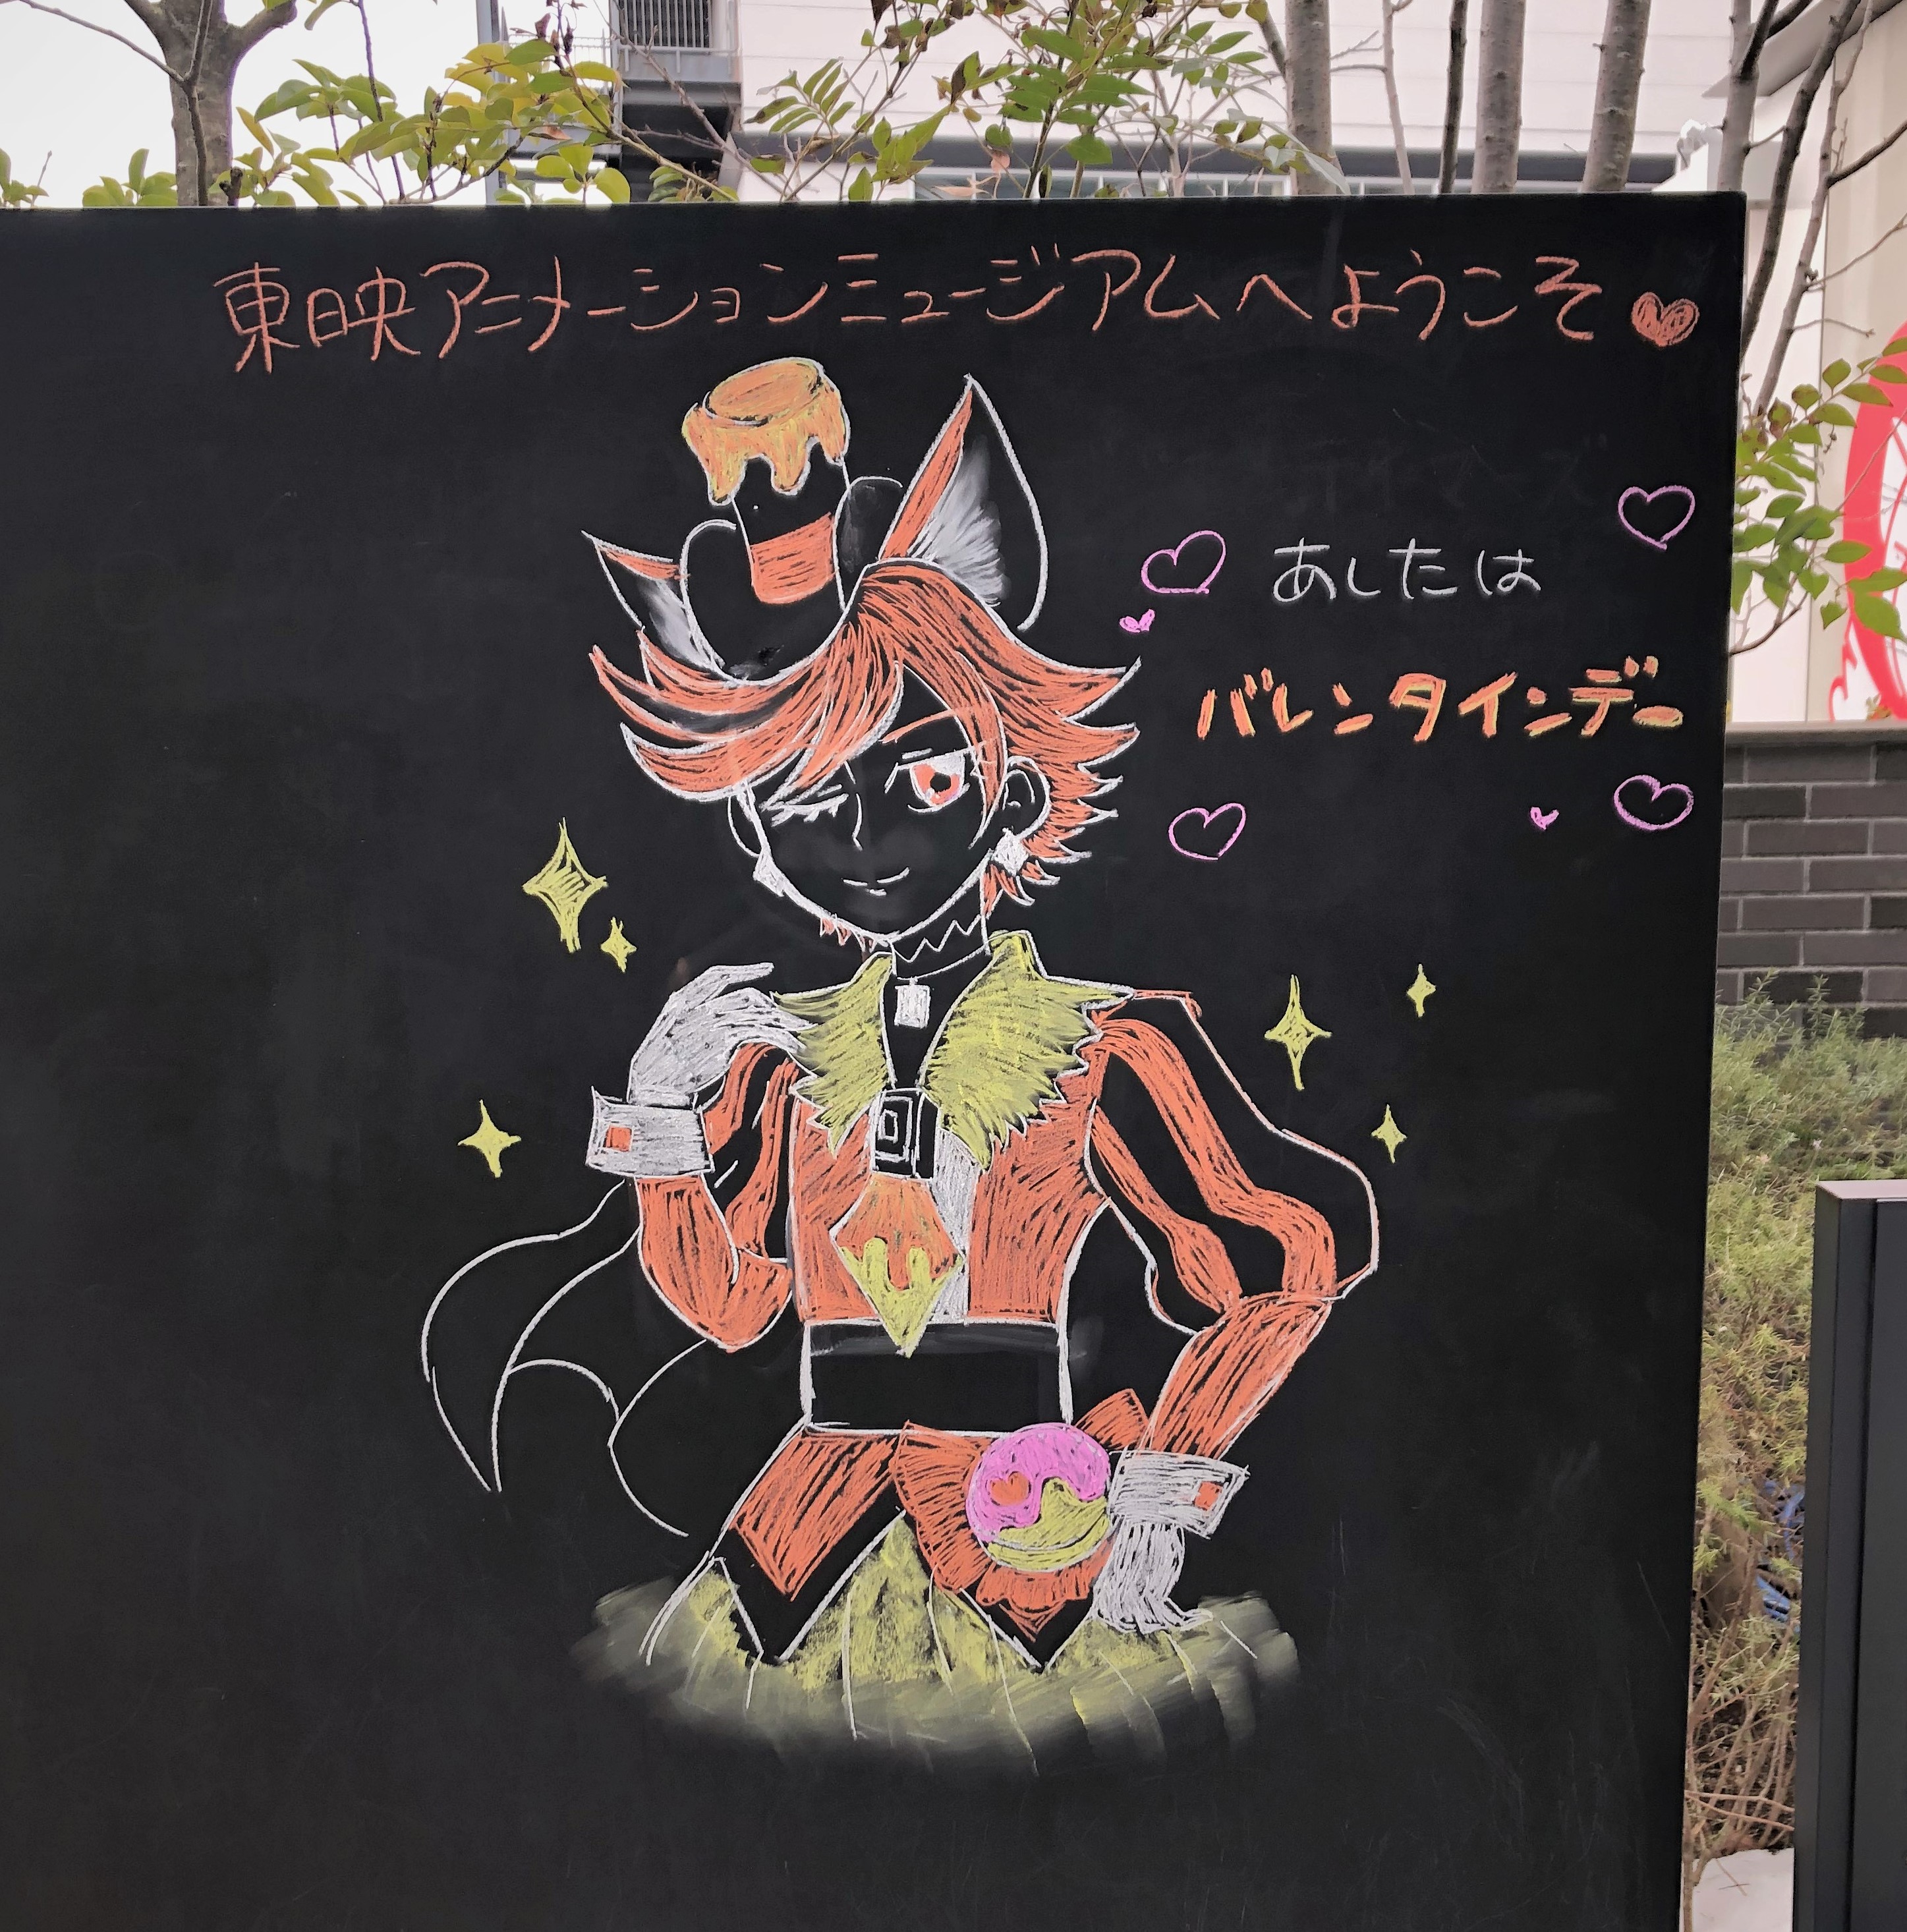 東映アニメーションミュージアムへようこそ
あしたは
バレンタインデー